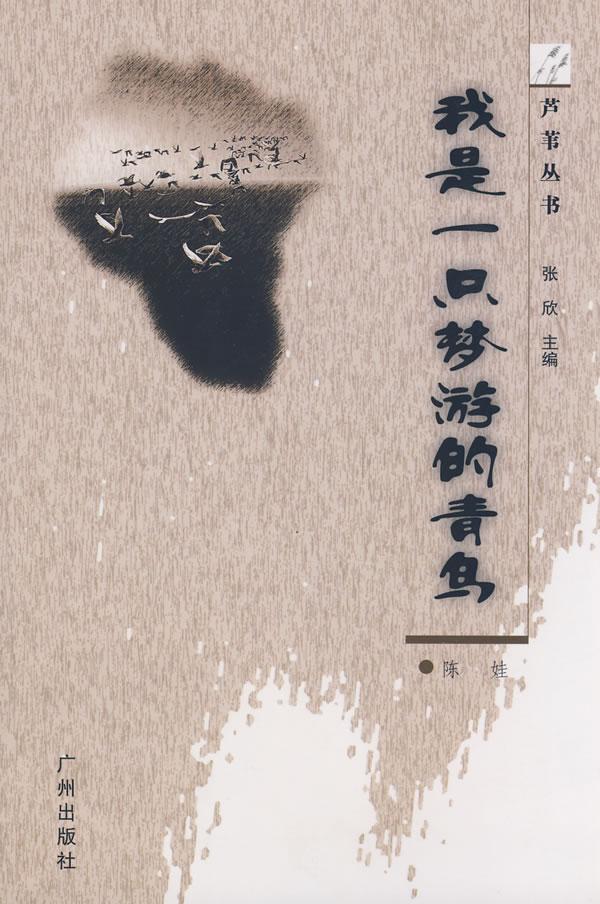 芦苇丛书
张欣 主编
我是一只梦游的青鸟
陈娃
广州出版社